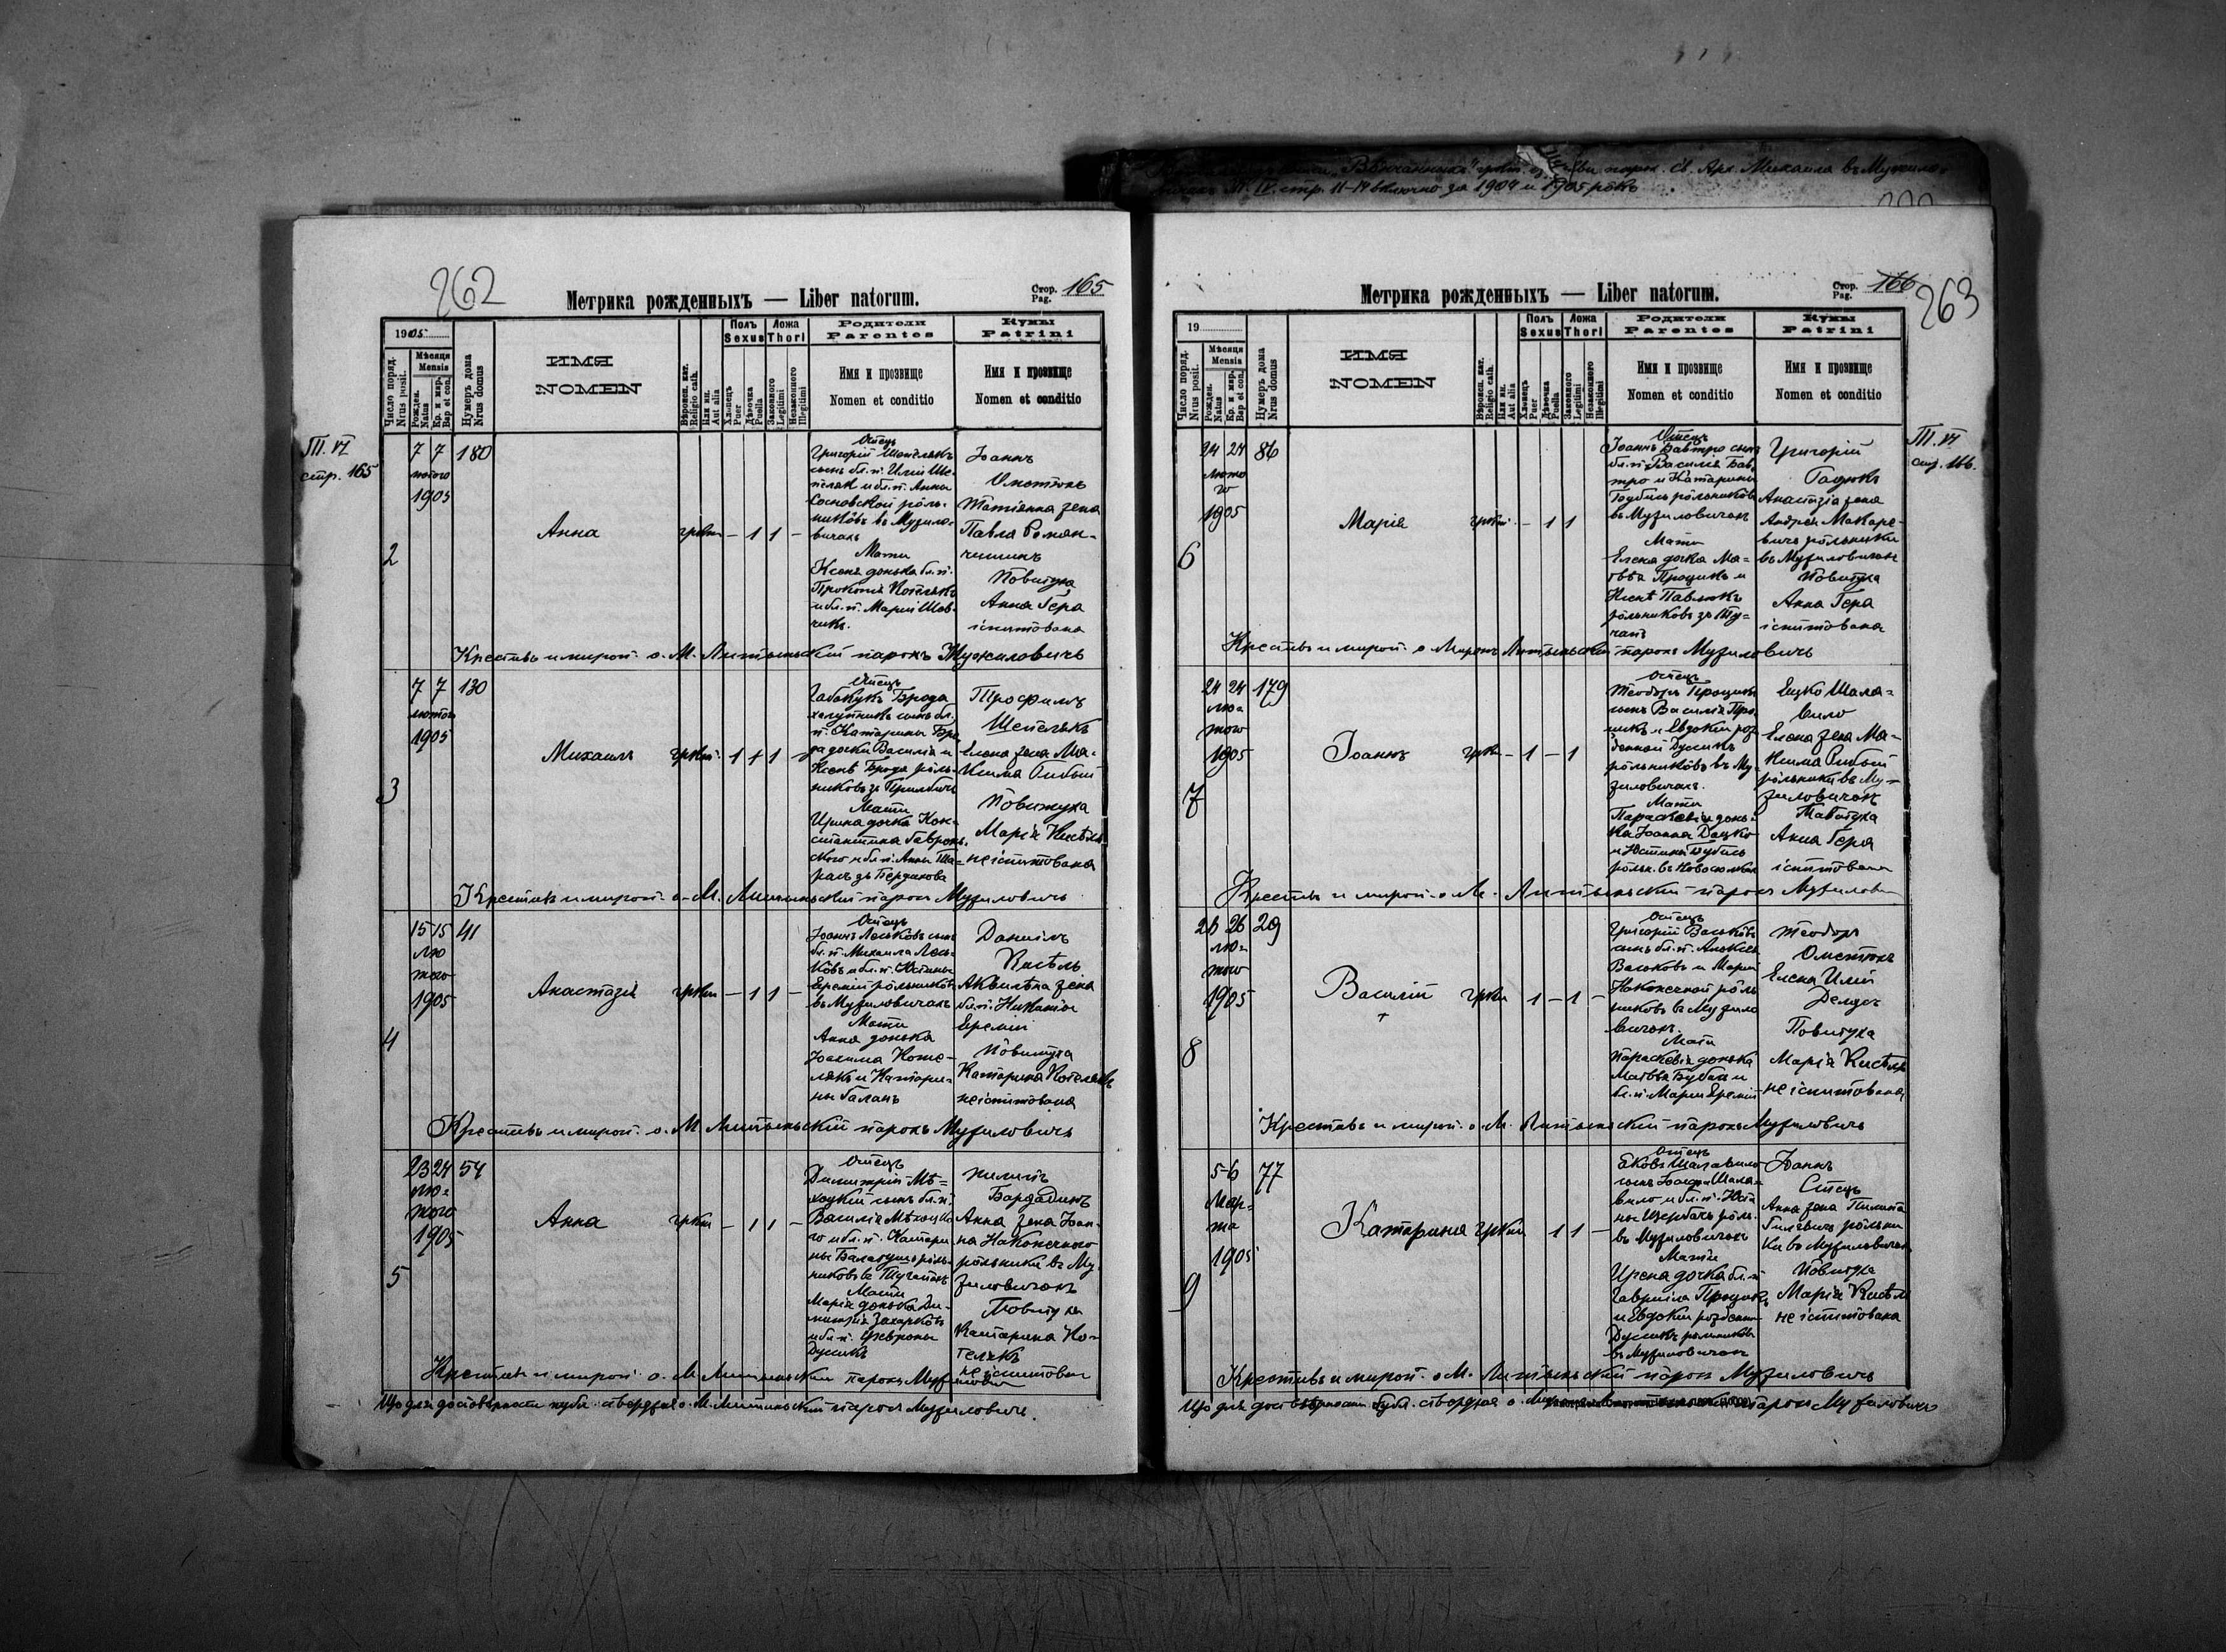 262
Метрика рожденныхъ — Liber natorum.
Стор. 165
Pag.
1905
Число поряд.
Nrus posit.
Мѣсяця
Mensis
Рожден.
Natus
Кр. и мир.
Bap et con.
Нумеръ дома
Nrus domus
ИМЯ
NOMEN
Вѣроисп. кат.
Religio cath.
Или ин.
Aut alia
Полъ
Sexus
Хлопецъ
Puer
Дѣвочка
Puella
Ложа
Thori
Законного
Legitimi
Незаконного
Illegitimi
Родители
Parentes
Имя и прозвище
Nomen et conditio
Кумы
Patrini
Имя и прозвище
Nomen et conditio
Т. VI
стр. 165
2
7 7
лютого
1905
180
Анна
гркт — 1 1 —
Отець
Григорій Шепелякъ
сынъ бл. п. Иліи Ше-
пелякъ и бл. п. Анны
Сосновской рôль-
никôвъ въ Мужило-
вичахъ
Мати
Ксеня донька бл. п.
Прокопія Котелякъ
и бл. п. Маріи Шев-
чикъ.
Іоаннъ
Ометюхъ
Татіянна жена
Павла Роман-
чишинъ
Повитуха
Анна Ґера
іспитована
Крестивъ и миров. о. М. Литыньскій парохъ Мужиловичь
3
7 7
лютого
1905
130
Михаилъ
гркт 1 1
Отець
Габакукъ Брода
халупникъ сынъ бл.
п. Катарины Бро-
да дочки Василія и
Ксенѣ Брода рôль-
никôвъ зъ Прилбичь
Мати
Ирина дочка Кон-
стантина Гавронь-
ского и бл. п. Анны
зъ Бердихова
Трофимъ
Шепелякъ
Елена жена Ма-
ксима Рибый
Повитуха
Марія Кисѣль
неіспитована
Крестивъ и миров. о. М. Литыньскій парохъ Мужиловичь
4
15 15
лю
того
1905
41
Анастазія
гркт — 1 1 —
Отець
Іоаннъ Леськôвъ сынъ
бл. п. Михаила Лесь-
кôвъ и бл. п. Юстины
Еремій рôльникôвъ
въ Мужиловичахъ
Мати
Анна донька
Іоакима Коте-
лякъ и Катари-
ны Баланъ
Даниілъ
Кисѣль
Аквилѣна жена
бл. п. Никити
Еремій
Повитуха
Катарина Котелякъ
неіспитована
Крестивъ и миров. о. М. Литыньскій парохъ Мужиловичь
5
23 24
лю-
того
1905
54
Анна
гркт — 1 1 —
Отець
Димитрій Мѣ-
хоцкій сынъ бл. п.
Василія Мѣхоцко
го и бл. п. Катари-
ны рôль-
никôвъ въ Тучапахъ
Мати
Марія донька Ди-
митрія Захаркôвъ
и бл. п. Февроны
Дусикъ
Пилипъ
Анна жена Іоан-
на Наконечного
рôльники въ Му-
жиловичахъ
Повитуха
Катарина Ко-
телякъ
неіспитован
Крестивъ и миров. о. М. Литыньскій парохъ Мужиловичь
Що для достовѣрности публ. ствердж о. М. Литыньскій парохъ Мужиловичь.
Т. IV. стр. 11-14 включно за 1904 и 1905 рôкъ
Метрика рожденныхъ — Liber natorum.
Стор. 166
Pag.
263
19
Число поряд.
Nrus posit.
Мѣсяця
Mensis
Рожден.
Natus
Кр. и мир.
Bap et con.
Нумеръ дома
Nrus domus
ИМЯ
NOMEN
Вѣроисп. кат.
Religio cath.
Или ин.
Aut alia
Полъ
Sexus
Хлопецъ
Puer
Дѣвочка
Puella
Ложа
Thori
Законного
Legitimi
Незаконного
Illegitimi
Родители
Parentes
Имя и прозвище
Nomen et conditio
Кумы
Patrini
Имя и прозвище
Nomen et conditio
Т. VI
стр. 166.
6
24 24
люто
го
1905
86
Марія
гркт. — 1 1
Отець
Іоаннъ Бавтро сынъ
бл. п. Василія Бав-
тро и Катарины
рôльникôвъ
въ Мужиловичахъ
Мати
Елена дочка Ма-
твѣя Процикъ и
Ксенѣ Павлюкъ
рôльникôвъ зъ Ту-
чапъ
Григорій
Анастазія жена
Андрея Макаре-
вичь рôльники
въ Мужиловичахъ
Повитуха
Анна Ґера
іспитована
Крестивъ и миров. о. Миронъ Литыньскій парохъ Мужиловичь
7
24 24
лю-
того
1905
179
Іоаннъ
гркт — 1 — 1
Отець
Теодоръ Процикъ
сынъ Василія Про-
цикъ и Евдокіи рож-
денной Дусикъ
рôльникôвъ въ Му-
жиловичахъ.
Мати
Параскевія донь-
ка Іоанна Дацко
и Юстины
рôльн. въ Новосѣлкахъ
Ецко Шала-
вило
Елена жена Ма-
ксима Рибый
рôльники въ Му-
жиловичахъ
Повитуха
Анна Ґера
іспитована
Крестивъ и миров. о. М. Литыньскій парохъ Мужилови
8
26 26
лю-
того
1905
29
Василій
+
гркт 1 — 1 —
Отець
Григорій Васькôвъ
сынъ бл. п. Алексія
Васькôвъ и Маріи
Наконечной рôль
никôвъ въ Мужило
вичахъ.
Мати
Параскевія донька
Матвѣя и
бл. п. Маріи Еремій
Теодоръ
Ометюхъ
Елена Иліи
Демусъ
Повитуха
Марія Кисѣль
неіспитована
Крестивъ и миров. о. М. Литыньскій парохъ Мужиловичь
9
5 6
Мар-
та
1905
77
Катарина
гркт 1 1 —
Отець
Яковъ Шалавило
сынъ Шала-
вило и бл. п. Юсти
ны Щербатъ рôль.
въ Мужиловичахъ
Мати
Ирена дочка бл. п.
Гавриіла Процикъ
и Евдокіи рожденной
Дусикъ рôльникôвъ
въ Мужиловичахъ
Іоаннъ
Стець
Анна жена Пилипа
рôльни
ки въ Мужиловичахъ
Повитуха
Марія Кисѣль
неіспитована
Крестивъ и миров. о. М. Литыньскій парохъ Мужиловичь
Що для достовѣрности публ. ствердж о. парохъ Мужиловичь